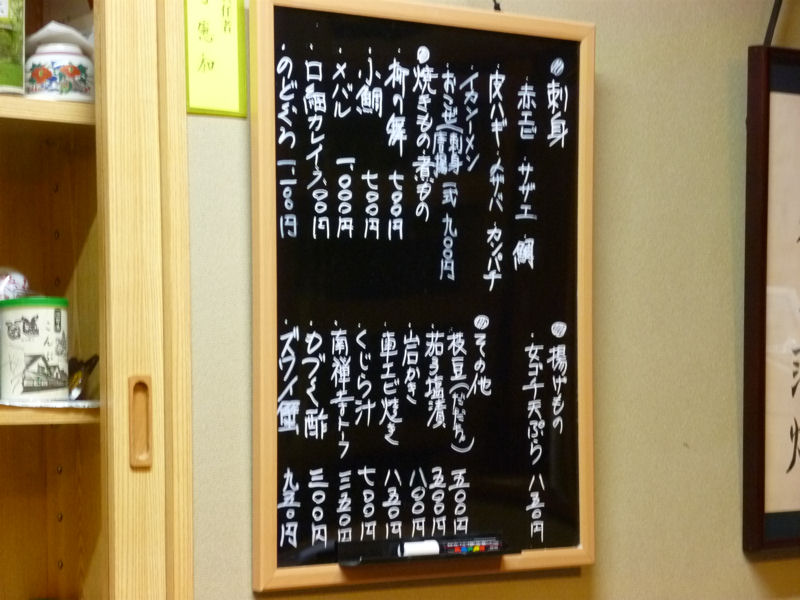 刺身
赤エビ サザエ 鯛
皮ハギ メサバ カンパチ
イカソーメン
おこぜ(刺身 唐揚)一式 九〇〇円
焼きもの 煮もの
柳の舞 七〇〇円
小鯛 七〇〇円
メバル 一、〇〇〇円
口細カレイ 一、〇〇〇円
のどぐろ 一、一〇〇円
揚げもの
女ゴチ天ぷら 八五〇円
その他
枝豆(だだちゃ) 五〇〇円
茄子塩漬 五〇〇円
岩かき 八〇〇円
車エビ焼き 八五〇円
くじら汁 七〇〇円
南禅寺トーフ 三五〇円
もづく酢 三〇〇円
ズワイ蟹 九五〇円